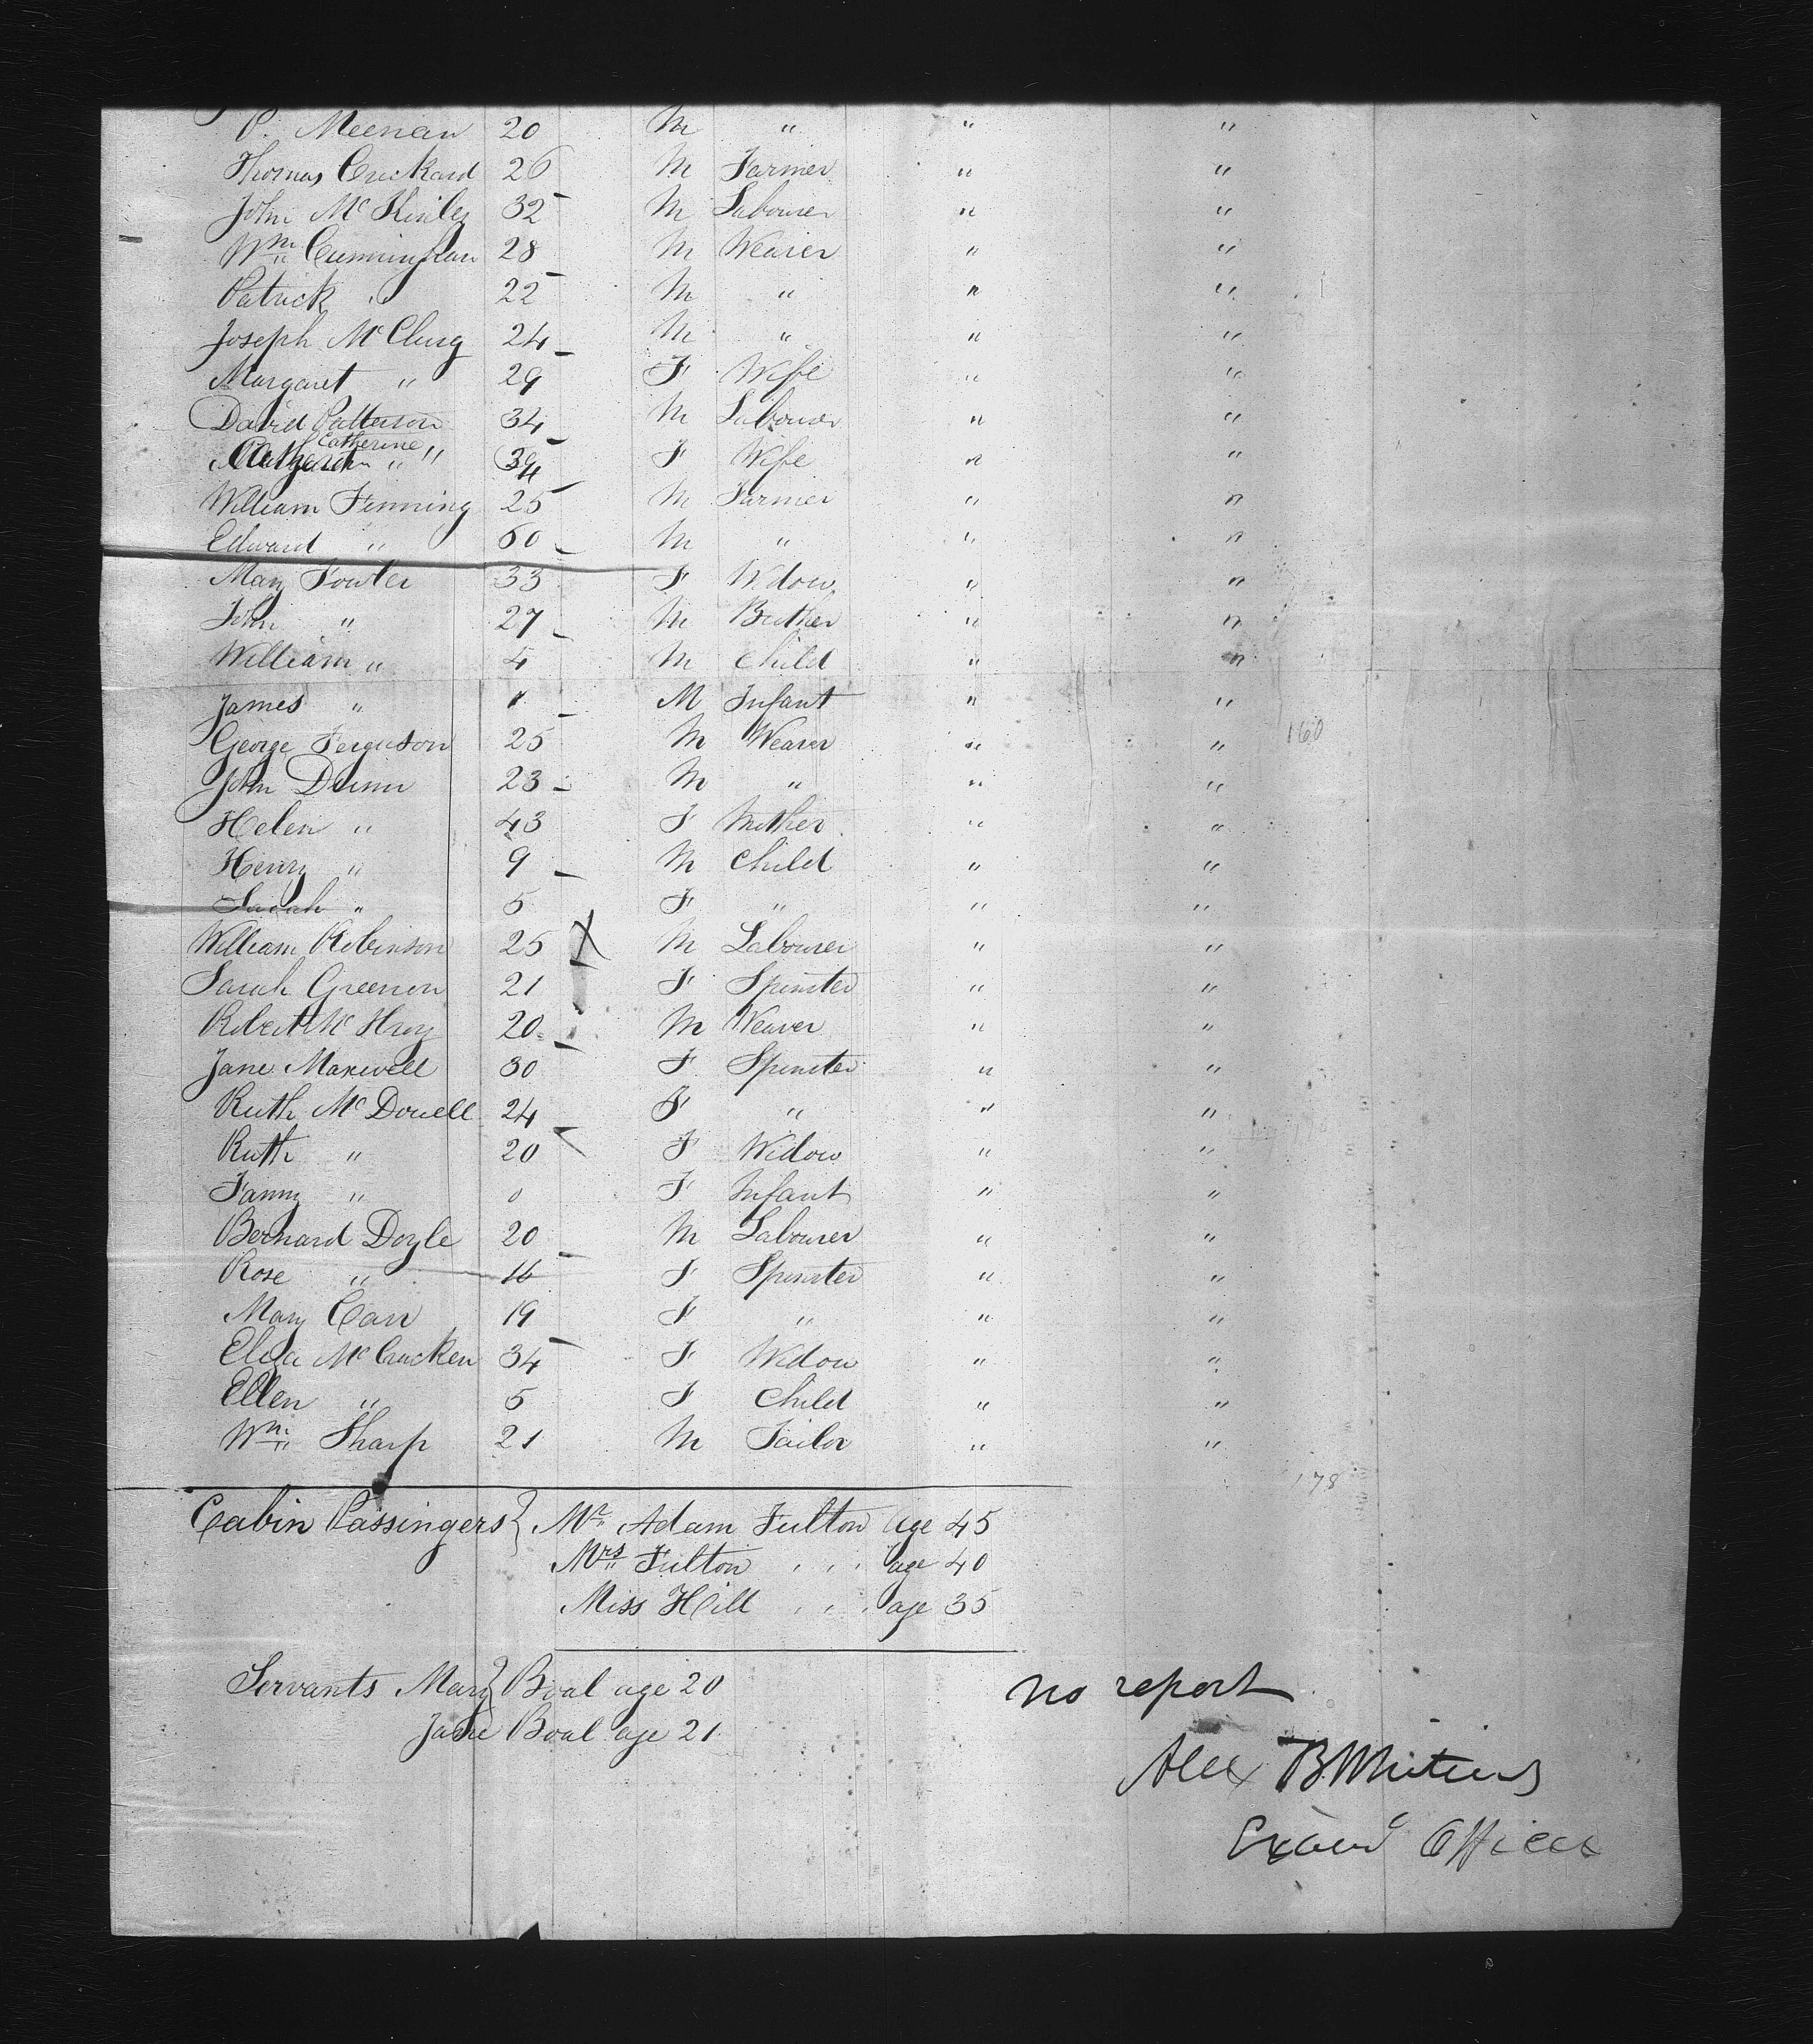 P. Meenan 20 M " " "
Thomas Crickard 26 M Farmer " "
John McKinley 32 M Labourer " "
Wm Cunningham 28 M Weaver " "
Patrick " 22 M " " "
Joseph McClurg 24 M " " "
Margaret " 29 F Wife " "
David Patterson 34 M Labourer " "
Catherine " 34 F Wife " "
William Finning 25 M Farmer " "
Edward " 60 M " " "
Mary Fowler 33 F Widow " "
John " 27 M Brother " "
William " 4 M Child " "
James " 1 M Infant " "
George Ferguson 25 M Weaver " " 160
John Dunn 23 M " " "
Helen " 43 F Mother " "
Henry " 9 M Child " "
Sarah " 5 F " " "
William Robinson 25 X M Labourer " "
Sarah Greenen 21 F Spinster " "
Robert McIlroy 20 M Weaver " "
Jane Maxwell 30 F Spinster " "
Ruth McDowell 24 F " " "
Ruth " 20 F Widow " "
Fanny " 0 F Infant " "
Bernard Doyle 20 M Labourer " "
Rose " 16 F Spinster " "
Mary Carr 19 F " " "
Eliza McCracken 34 F Widow " "
Ellen " 5 F Child " "
Wm Sharp 21 M Tailor " "
178
Cabin Passingers } Mr Adam Fulton Age 45
Mrs Fulton " " " age 40
Miss Hill " " " age 35
Servants Mary } Boal age 20
Jane Boal age 21
no report
Alex B.
Officer